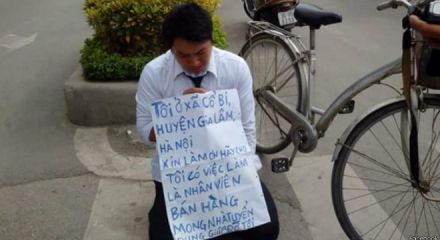 TÔI Ở XÃ CỔ BI,
HUYỆN GIA LÂM,
HÀ NỘI
XIN LÀM ƠN HÃY CHO
TÔI CÓ VIỆC LÀM
LÀ NHÂN VIÊN
BÁN HÀNG
MONG NHÀ TUYỂN
DỤNG GIÚP ĐỠ TÔI
facebook